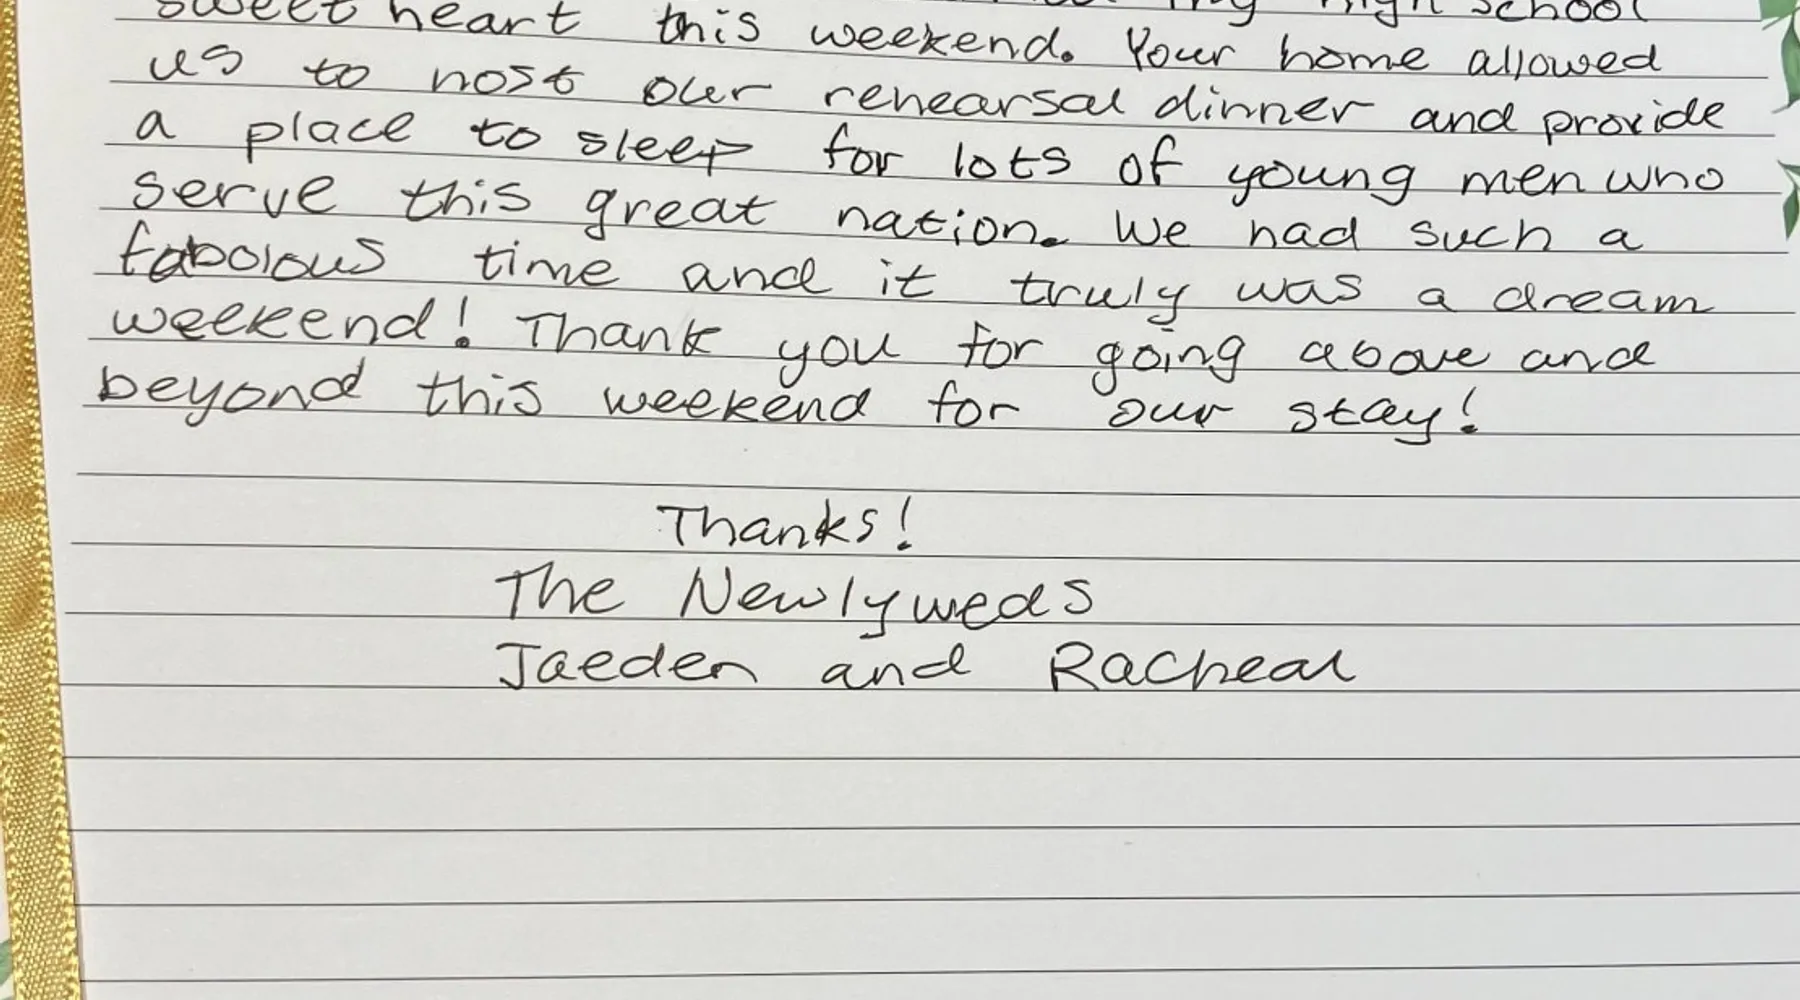 my high school
sweet heart this weekend. Your home allowed
us to host our rehearsal dinner and provide
a place to sleep for lots of young men who
serve this great nation. We had such a
fabolous time and it truly was a dream
weekend! Thank you for going above and
beyond this weekend for our stay!
Thanks!
The Newlyweds
Jaeden and Racheal